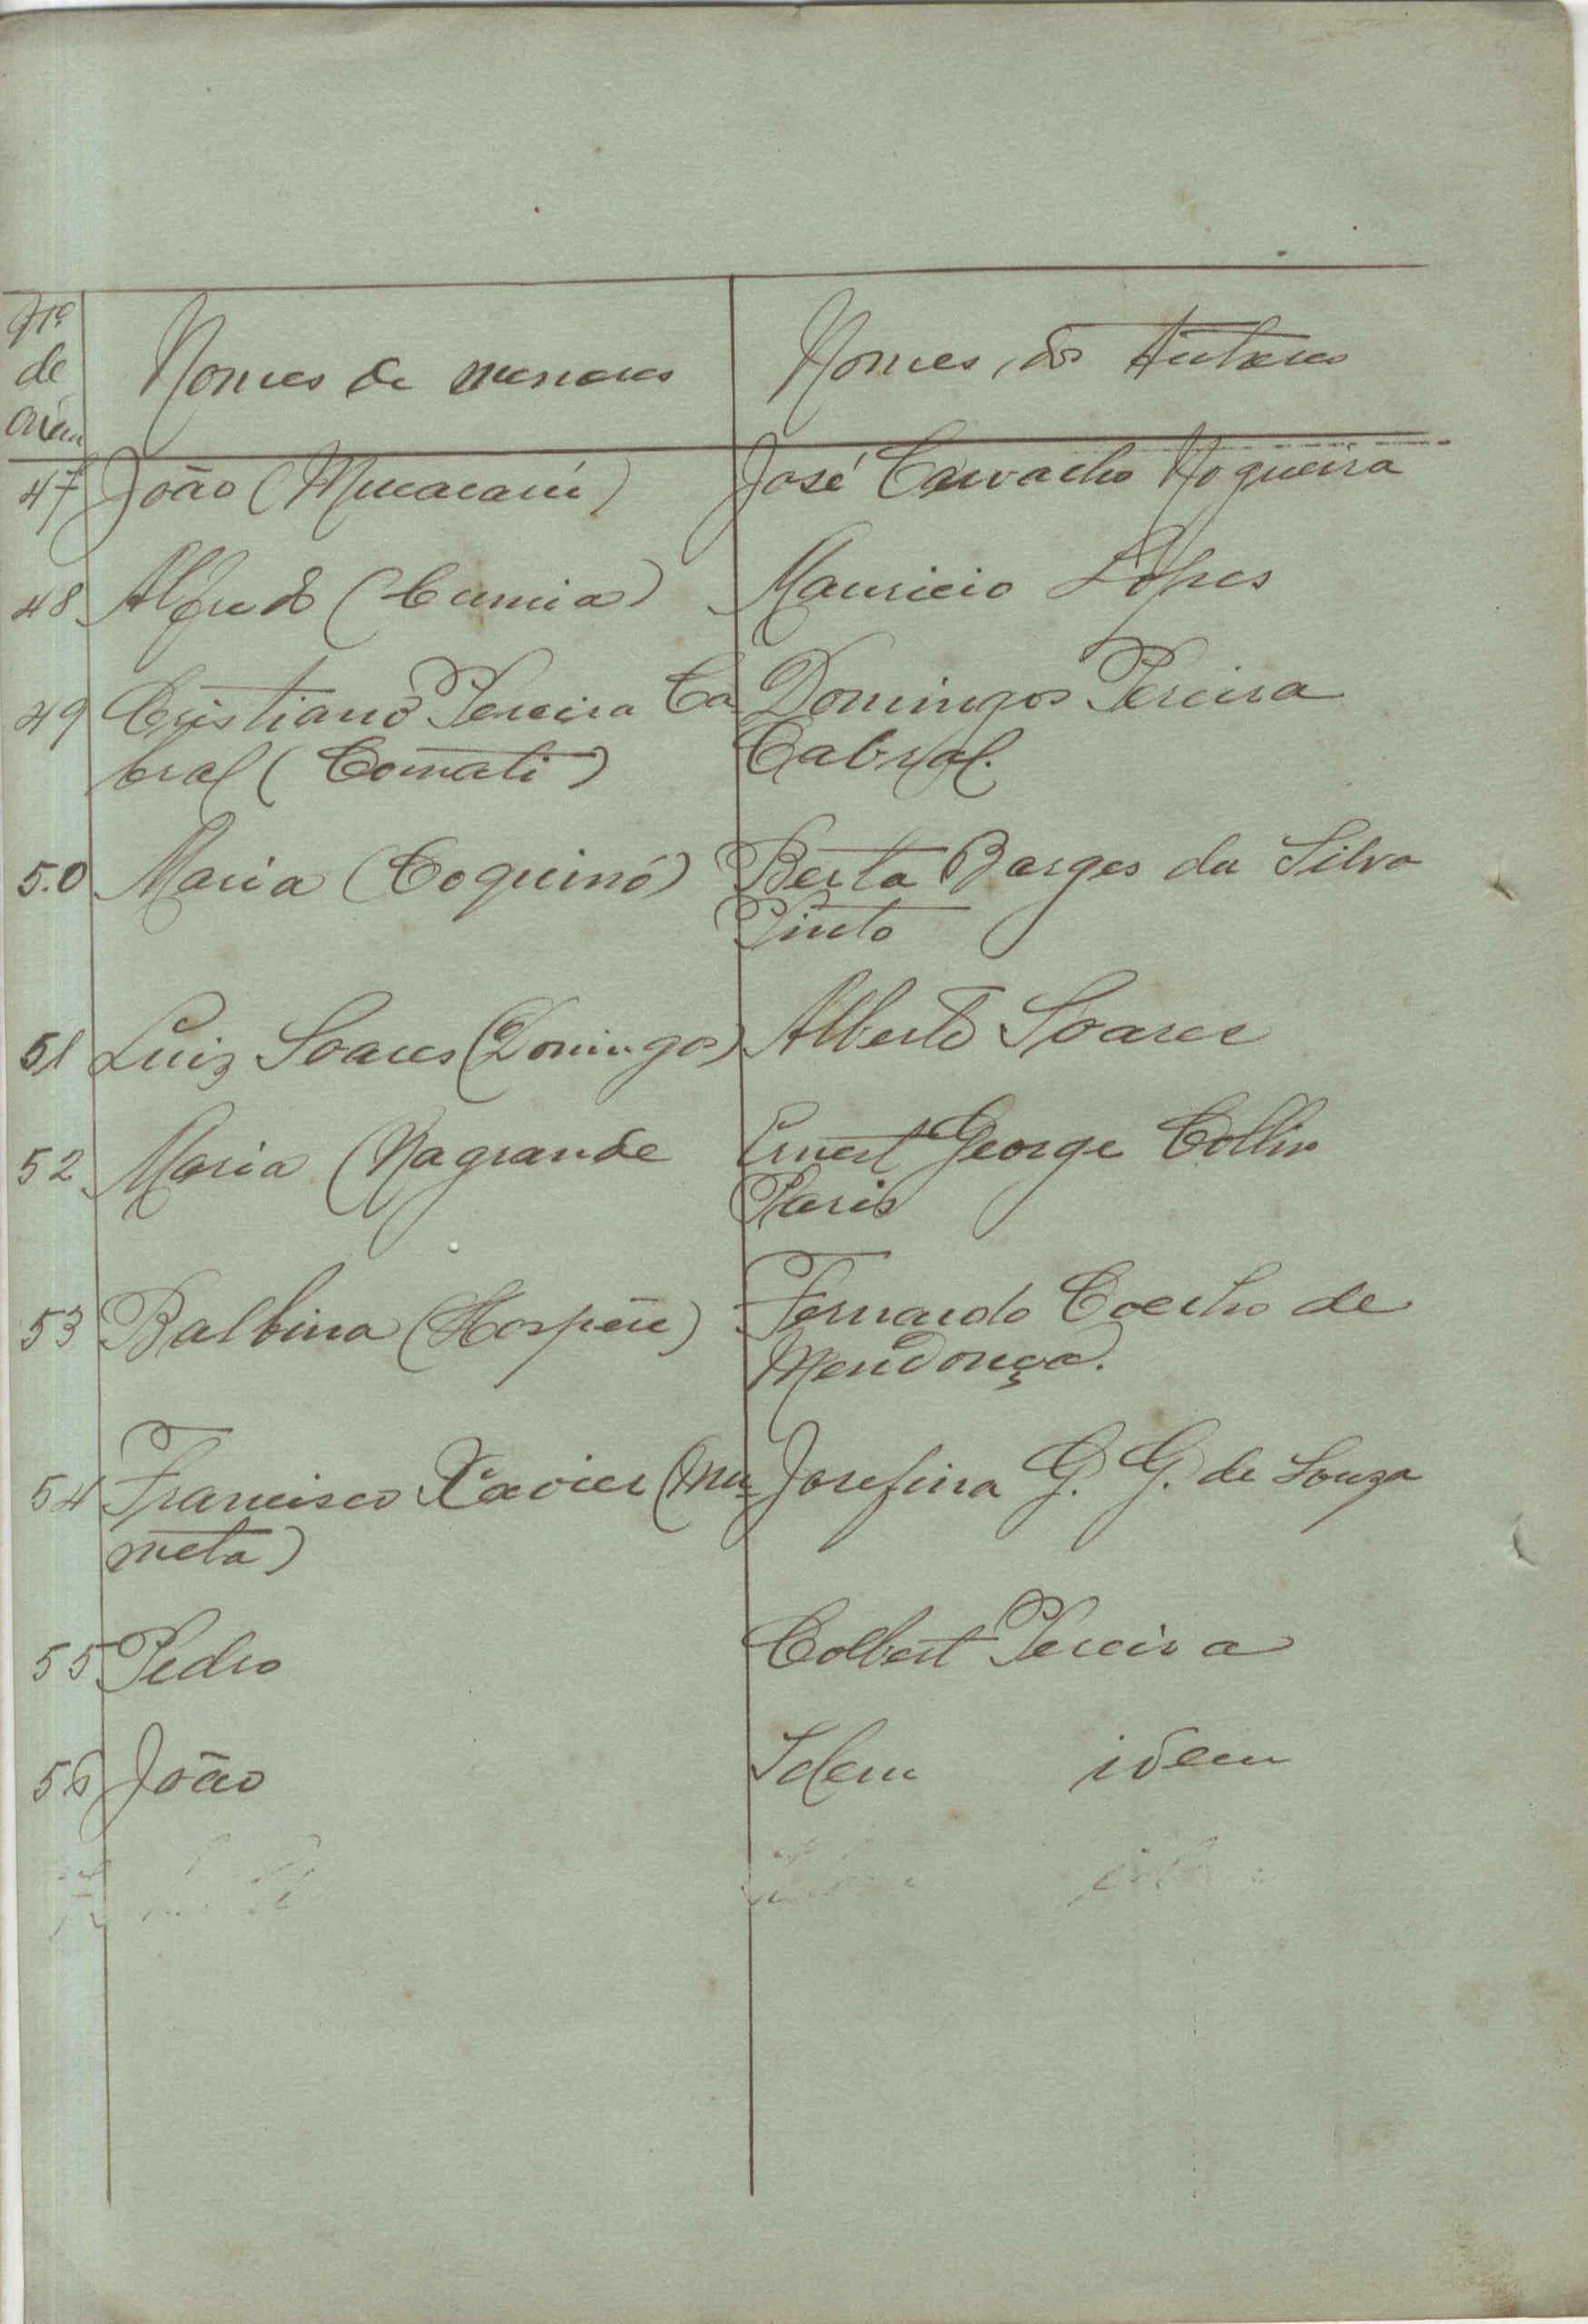 Nº
de
Nomes de menores Nomes, dos Autores
47 João (Mucacaríi) José Carvalho Nogueira
48 Alfredo (Cumia) Mauricio Lopes
49 Cristiano Pereira Ca Domingos Pereira
bral (Comati) Cabral.
50 Maria (Coquinó) Berta Borges da Silva
Pinto
51 Luiz Soares (Domingos) Alberto Soares
52 Maria (Nagrande Ernest George Collin
Paris
53 Balbina Fernando Coelho de
Mendonça.
54 Francisco Xavier (Mu= Josefina G. G. de Souza
meta)
55 Pedro Colbert Pereira
56 João Idem idem